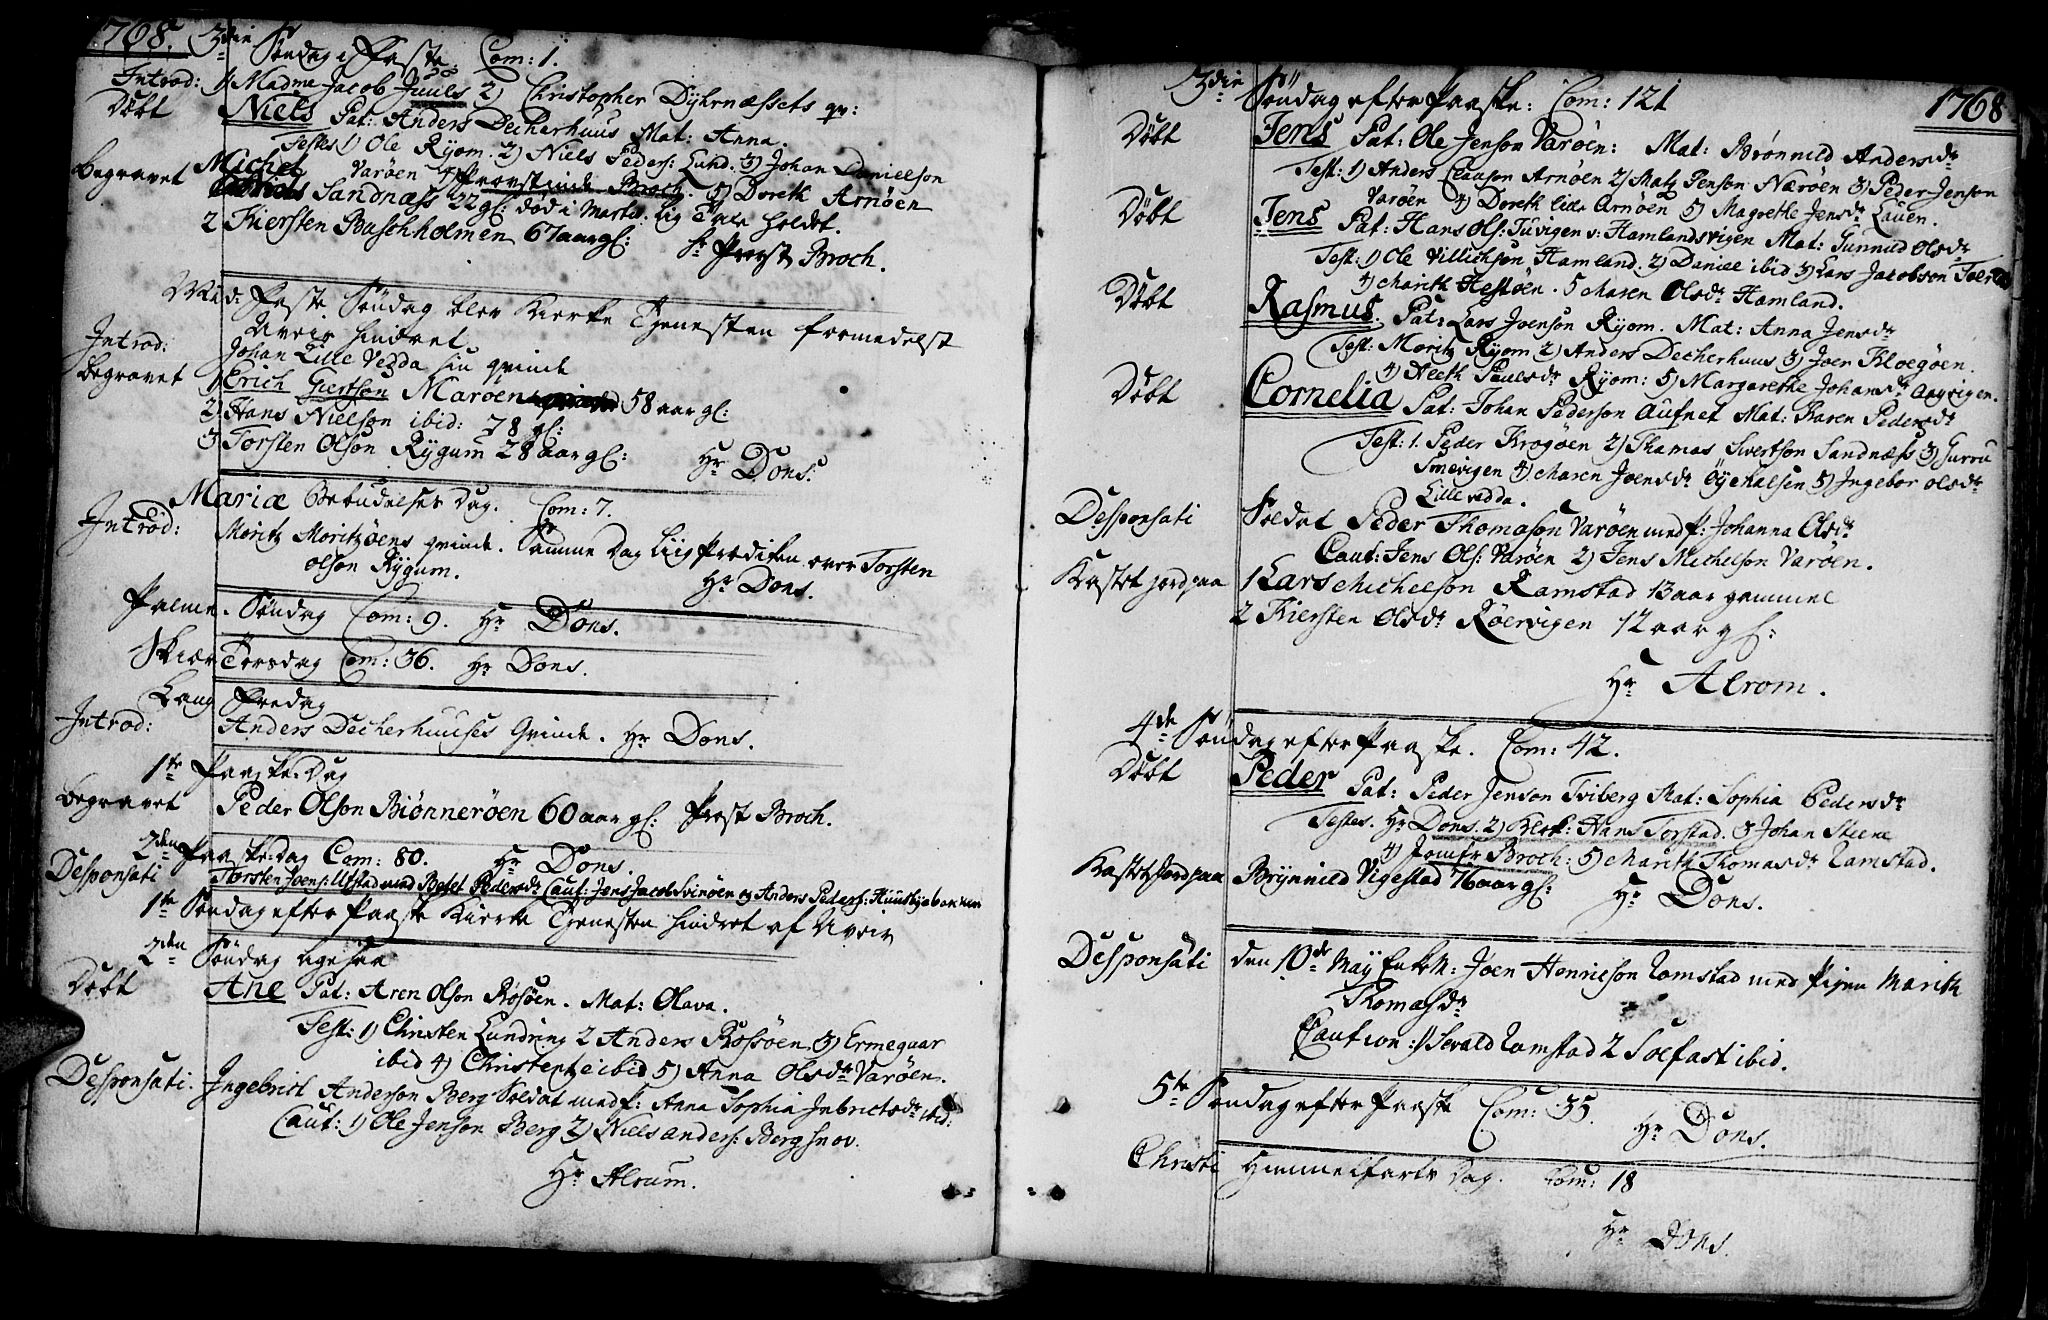 1768. 3die Søndag i Faste. Com: 1.
Introd: 1. Madme Jacob Juuls 2) Christopher Dyhrnæssets qv:
Döbt Niels Pat: Anders Decherhuus Mat: Anna.
Testes 1) Ole Ryom. 2) Niels Peders: Lund. 3) Johan Danielson
Varøen 4) Provstinde Broch. 5) Doreth Arnøen
Begravet Michel Sandnæss 22 gl: død i Martz. Lig Tale holdet.
2 Kiersten Buschholmen 67 aar gl: Hr Provst Broch.
Mid: Faste Søndag blev Kierke Tjenesten formedelst
Uveir hindret
Introd: Johan Lille Vedda sin qvinde
Begravet 1 Erich Giertson Marøen 58 aar gl:
2) Hans Nielson ibid: 78 gl:
3 Torsten Olson Rygum 28 aar gl: Hr Dons.
Mariæ Bebudelses Dag. Com: 7.
Introd: Moritz Moritzøens qvinde. Samme Dag Liig Prediken over Torsten
Olson Rygum. Hr Dons.
Palme-Søndag Com: 9. Hr Dons.
Skiær Torsdag Com: 36. Hr Dons.
Lang Fredag
Introd: Anders Decherhuuses Qvinde. Hr Dons.
1te Paaske Dag
Begravet Peder Olson Biønnerøen 60 aar gl: Provst Broch.
2den Paaske dag Com: 80. Hr Dons.
Desponsati Torsten Joens: Utstad med Beret Pedersdr Caut: Jens Jacobs Svinøen og Anders Peders:
1te Søndag efter Paaske Kierke Tjenesten hindret af Uveir
2den Søndag ligesaa
Döbt Ane Pat: Aren Olson Rosøen. Mat: Olava.
Test: 1) Christen Lundring 2 Anders Rossøen 3) Ermeguar
ibid 4) Christentze ibid 5) Anna Olsdr Varøen.
Desponsati. Ingebrict Anderson Berg Soldat med p: Anna Sophia Inbrictsdr ibid:
Caut: 1) Ole Jenson Berg 2) Niels Anders: Bergsnov.
Hr Alrum.
3die Søndag efter Paaske: Com: 121 1768
Döbt Jens Pat: Ole Jenson Varøen: Mat: Brønnild Andersdr
Test: 1) Anders Claason Arnøen 2) Matz Jenson Nærøen 3) Peder Jenson
Varøen 4) Doreth lide Arnøen 5) Magrethe Jensdr Lauen.
Döbt Jens Pat: Hans Ols: Tuvigen v: Hamlandsvigen Mat: Gunnild Olsdr
Test: 1) Ole Villichson Hamland. 2) Daniel ibid 3) Lars Jacobson
4) Marith Hestøen. 5 Maren Olsdr Hamland.
Döbt Rasmus. Pat: Lars Joenson Ryom. Mat: Anna Jensdr
Test: Moritz Ryom 2) Anders Decherhuus 3) Joen Kloegøen.
4) Aleth Paulsdr Ryom: 5) Margarethe Johansdr
Döbt Cornelia Pat: Johan Pederson Aufnet Mat: Karen Pedersdr
Test: 1. Peder Krogøen 2) Thomas Sivertson Sandnæss 3) Gurru
Smevigen 4) Maren Joensdr Øyehalsen 5) Ingebor Olsdr
Lille vedda.
Desponsati Soldat Peder Thomason Varøen med p: Johanna Olsdr
Caut: Jens Ols: Varøen 2) Jens Michelson Varøen.
Kastet jord paa 1 Lars Michelson Ramstad 13 aar gammel
2 Kiersten Olsdr Røervigen 12 aar gl:
Hr Alrom.
4de Søndag efter Paaske. Com: 42.
Döbt Peder Pat: Peder Jenson Tviberg Mat: Sophia Pedersdr
Testes. Hr Dons. 2) Klok: Hans Torstad. 3 Johan Steene
4) Jomfr Broch: 5) Marith Thomasdr Ramstad.
Kastet Jord paa Brynnild Vigestad 76 aar gl: Hr Dons.
Desponsati den 10de May Enkem: Joen Henricson Ramstad med Pigen Marith
Thomasdr
Caution: 1) Sevald Ramstad 2 Solfast ibid.
5te Søndag efter Paaske Com: 35.
Hr Dons.
Christi Himmelfarts Dag. Com: 18
Hr Dons.